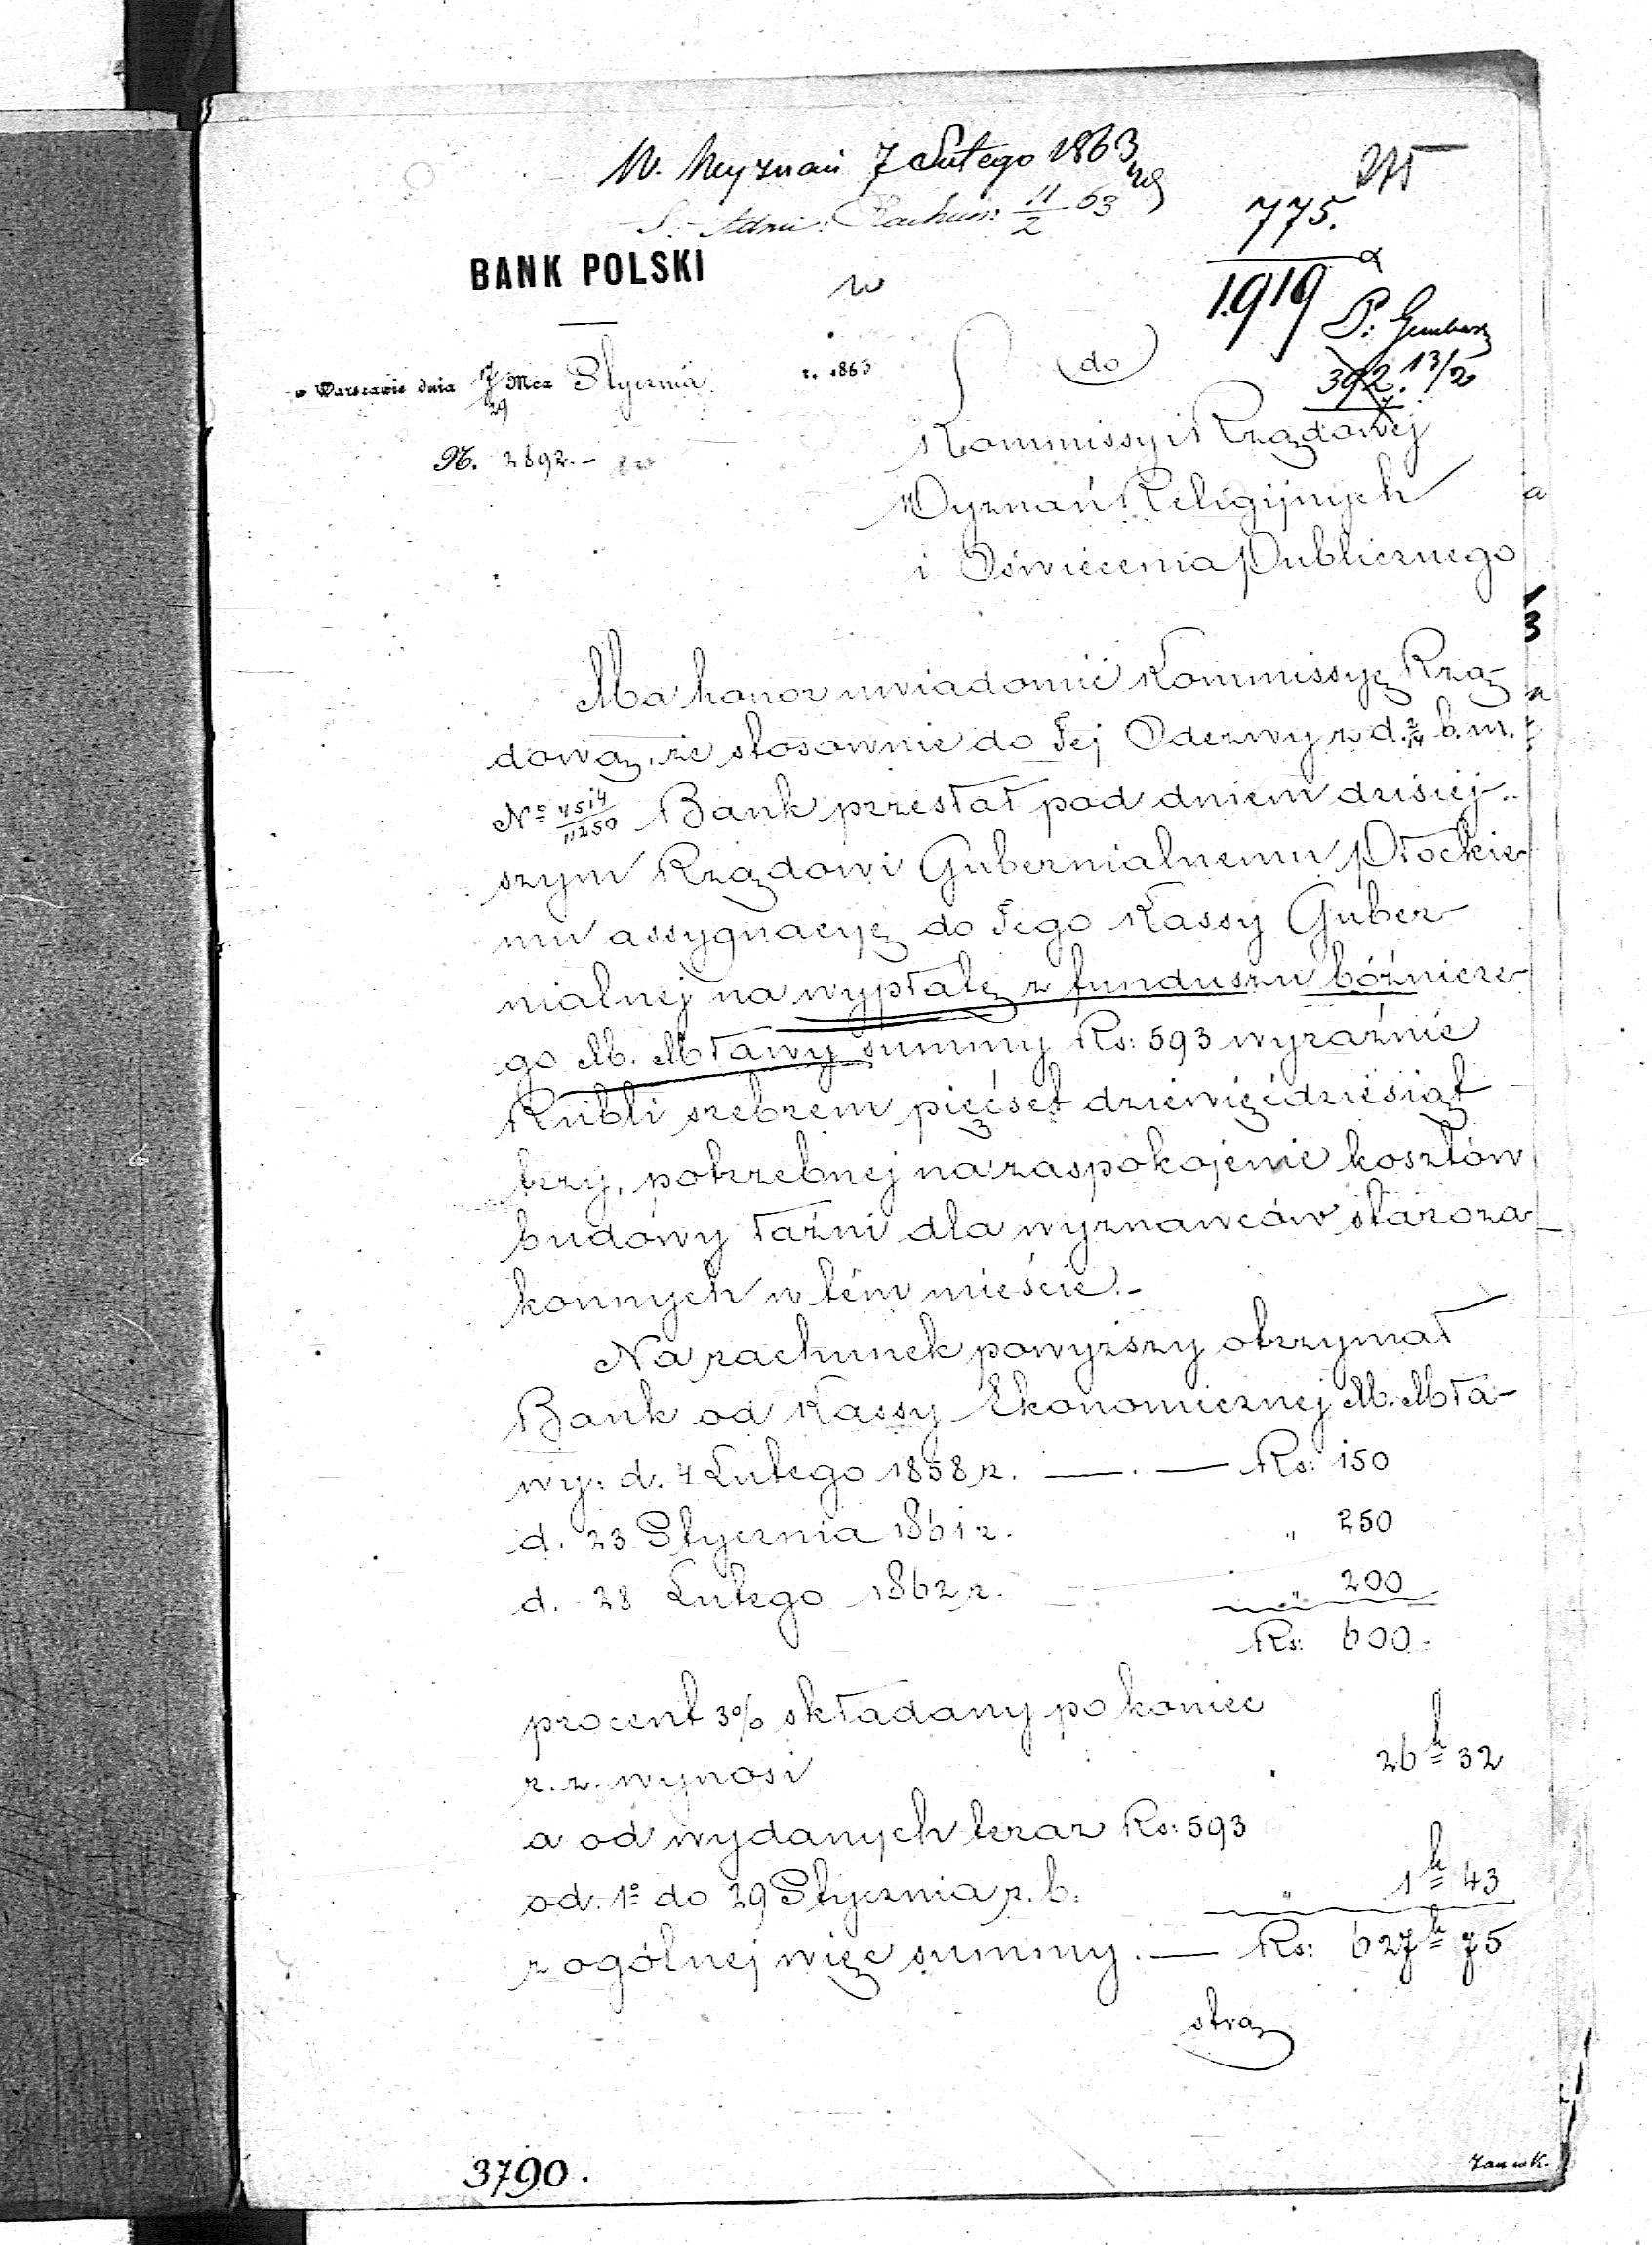 W. Wyznań 7 Lutego 1863
Rachun: 11/2 63
275
775.
1919
BANK POLSKI
w Warszawie dnia 17/29 Mca Stycznia r. 1863
do
392. 13/2
N. 2892.-
Kommissyi Rządowej
Wyznań Religijnych
i Oświecenia Publicznego
Ma honor uwiadomić Kommissyę Rzą-
dową, że stosownie do Jej Odezwy z d. 2/14 b.m.
No 4514/11250 Bank przesłał pod dniem dzisiej-
szym Rządowi Gubernialnemu Płockie
mu assygnacyę do Jego Kassy Guber-
nialnej na wypłatę z funduszu bóźnicze-
go M. Mławy summy Rs: 593 wyraźnie
Rubli srebrem pięćset dziewięćdziesiąt
trzy, potrzebnej na zaspokojenie kosztów
budowy łaźni dla wyznawców staroza-
konnych w tém mieście.-
Na rachunek powyższy otrzymał
Bank od Kassy Ekonomicznej M. Mła-
wy: d. 4 Lutego 1858 r. —.— Rs: 150
d. 23 Stycznia 1861 r. " 250
d. 28 Lutego 1862 r. " 200
Rs: 600.
procent 3% składany po koniec
r. z. wynosi 26 k 32
a od wydanych teraz Rs: 593
od 1o do 29 Stycznia r. b. " 1 k 43
z ogólnej więc summy. — Rs: 627 k 75
stra
3790.